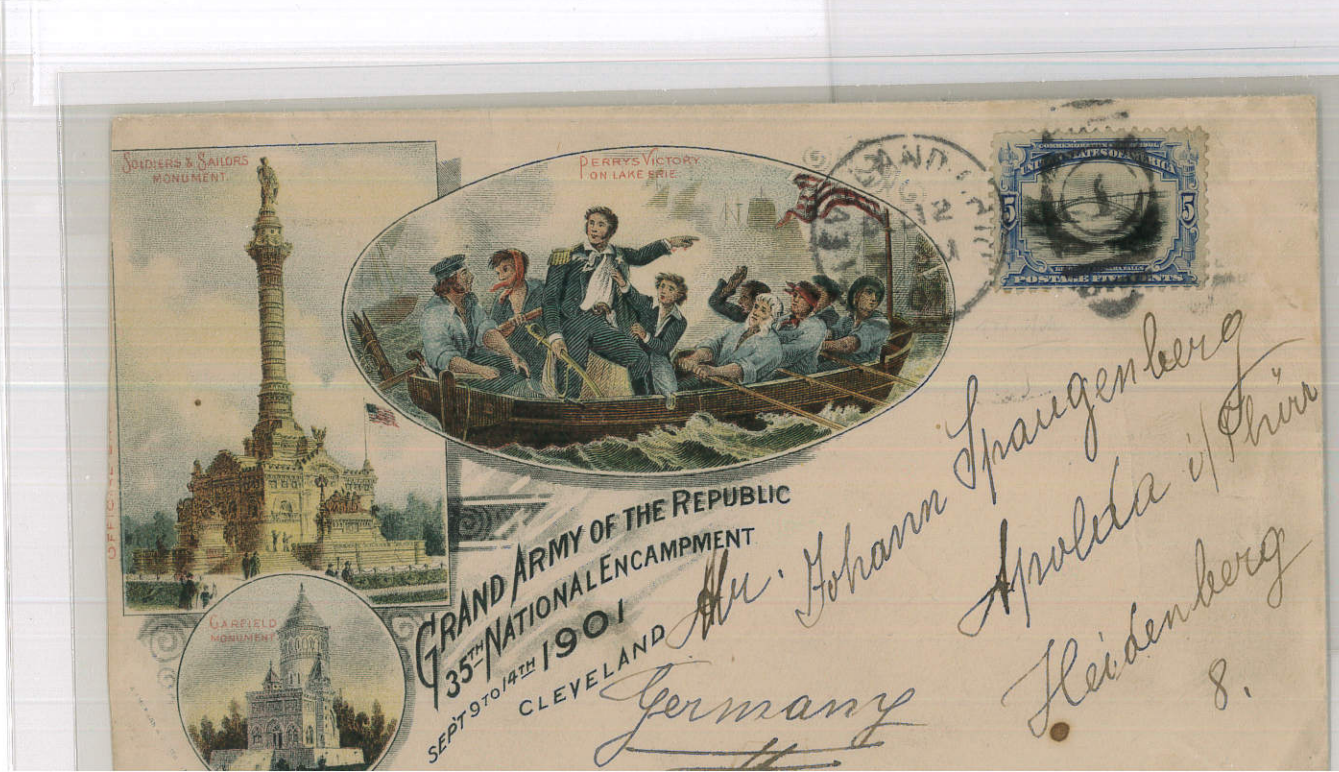 SOLDIERS & SAILORS
MONUMENT
PERRYS VICTORY
ON LAKE ERIE
UNITED STATES OF AMERICA
5 5
POSTAGE FIVE CENTS
GARFIELD
MONUMENT
GRAND ARMY OF THE REPUBLIC
35TH NATIONAL ENCAMPMENT
SEPT 9 TO 14TH 1901
CLEVELAND
Mr. Johann Spangenberg
Apolda i/Thür
Heidenberg
8.
Germany